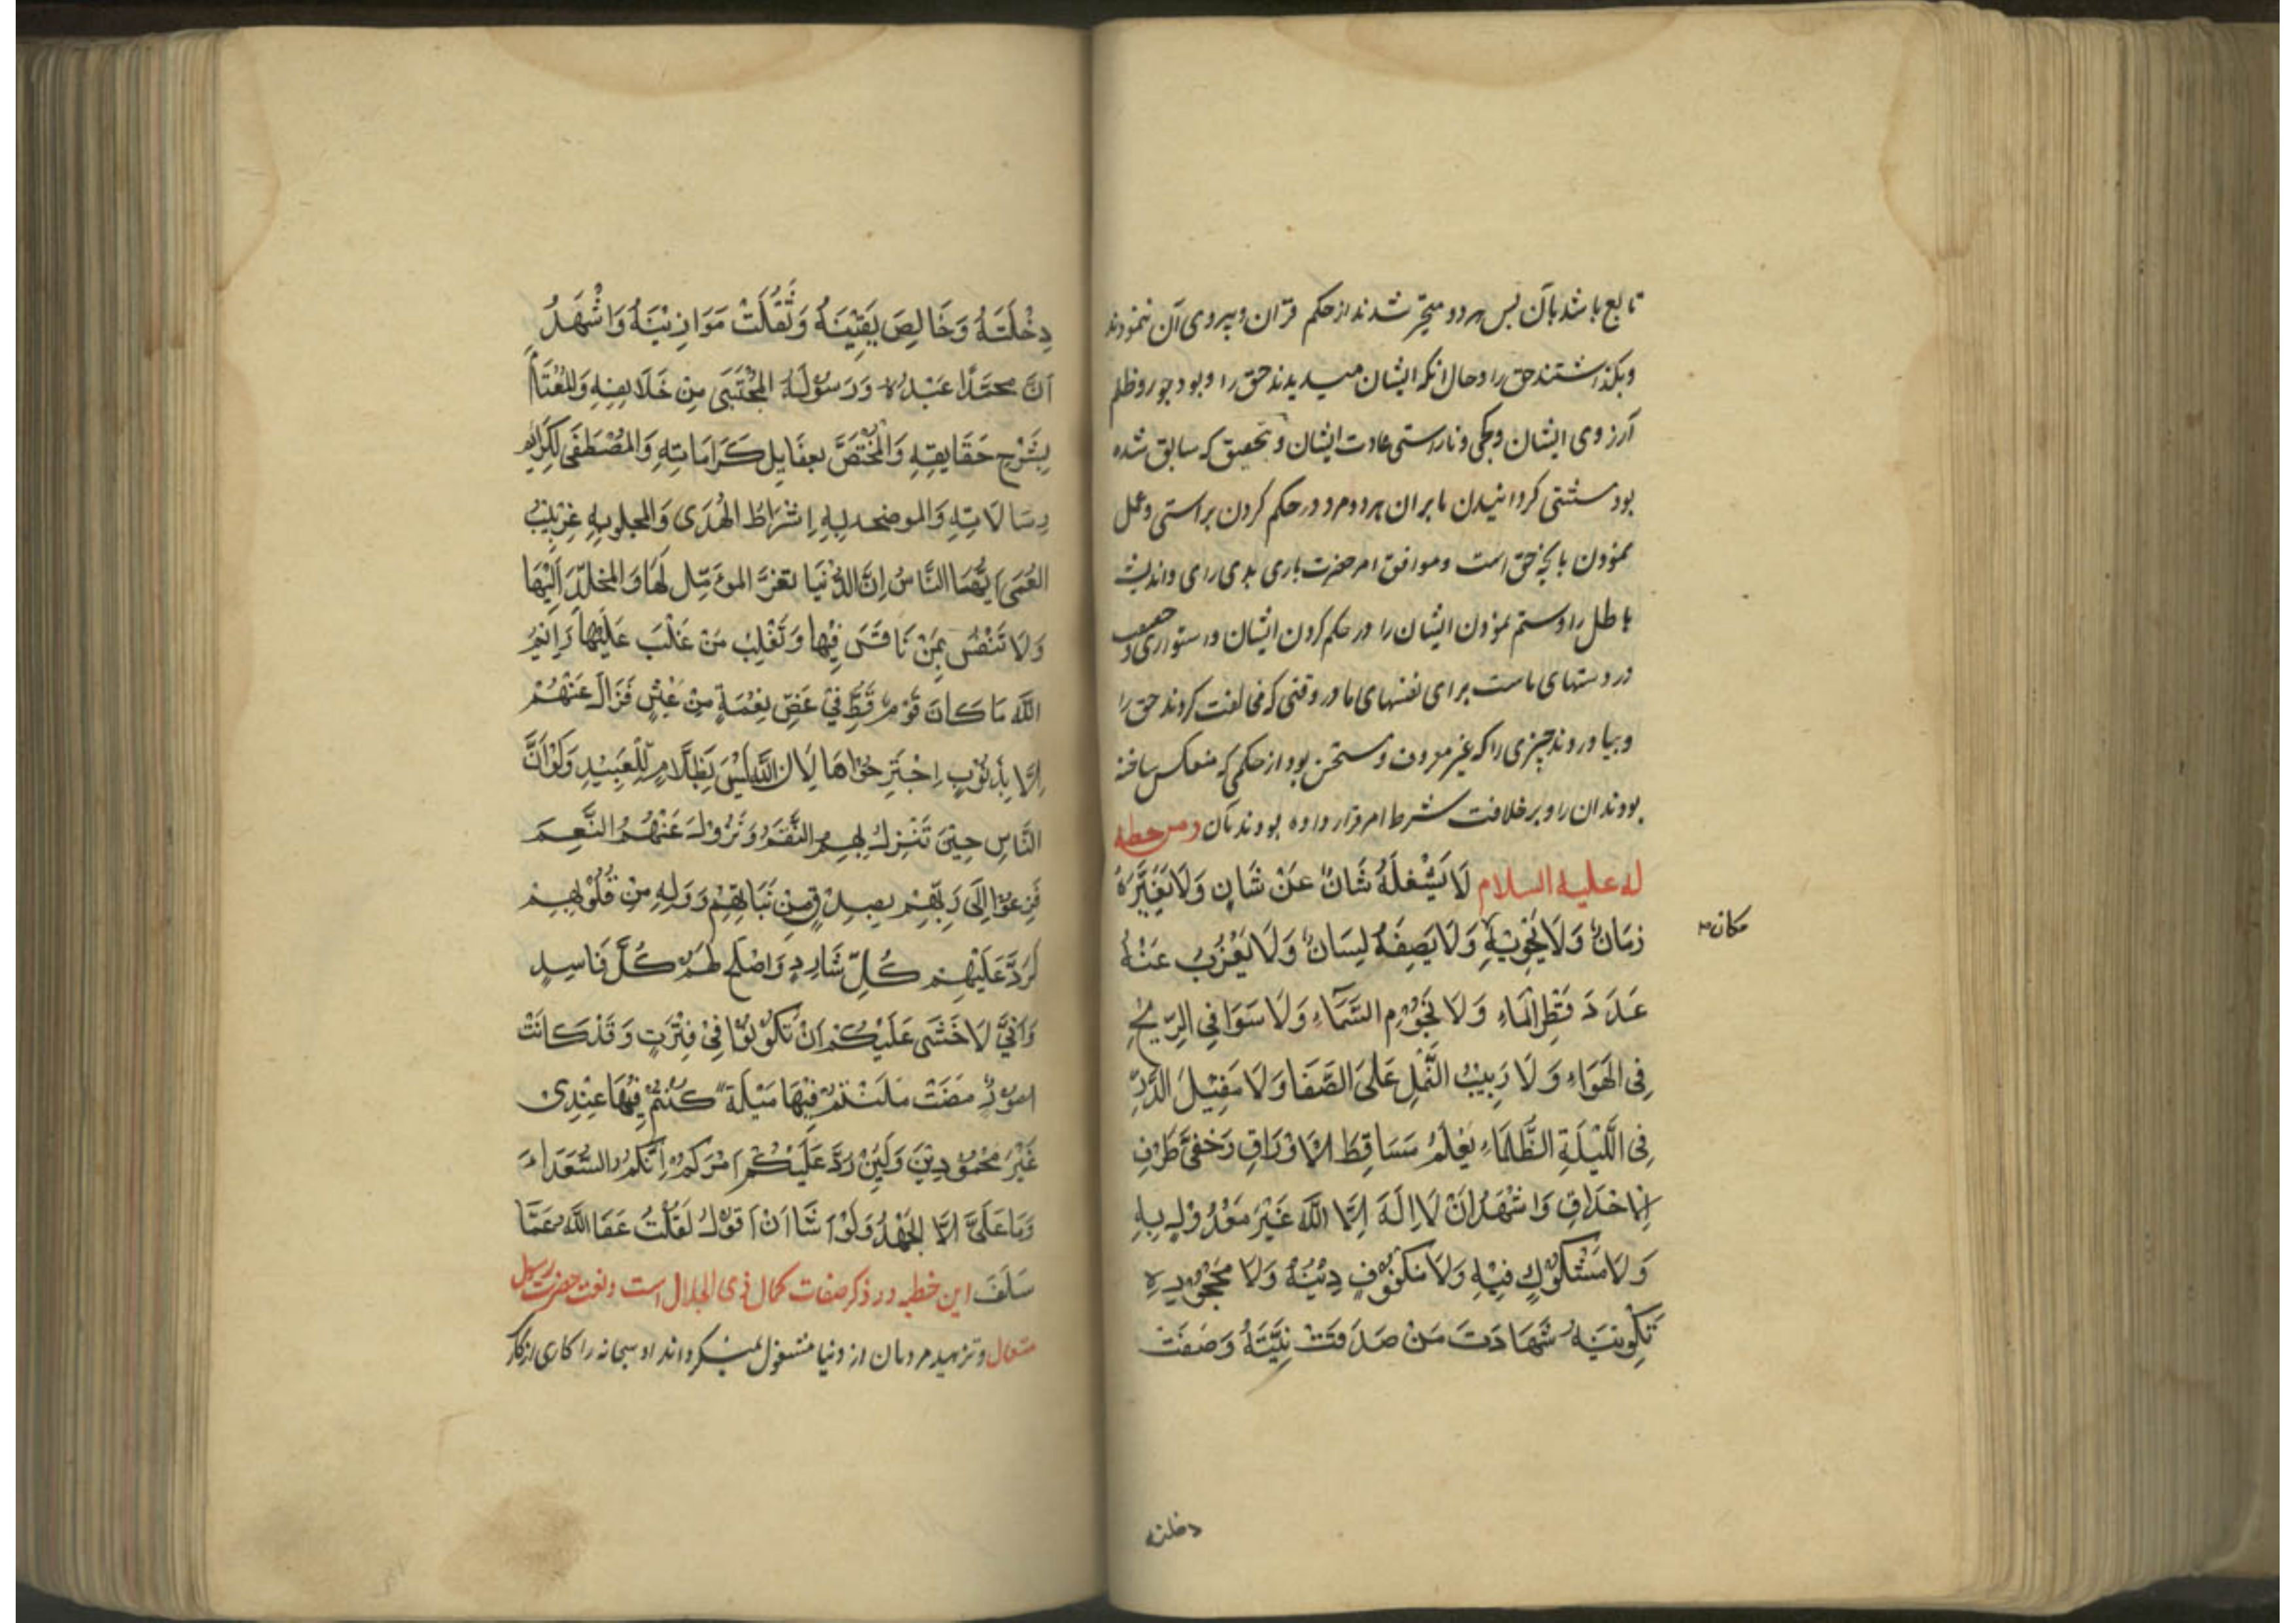 تابع باشد بآن پس هر دو متحیر شدند از حکم قرآن و پیروی آن ننمودند
و بکذاشتند حق را و حال انکه ایشان میدیدند حق را و بود جور و ظلم
آرزوی ایشان و کجی و ناراستی عادت ایشان و بتحقیق که سابق شده
بود مستثنی کردانیدن ما بر ان هر دو مرد در حکم کردن براستی و عمل
نمودن بآنچه حق است و موافق امر حضرت باری بدی رای و اندیشه
باطل را و ستم نمودن ایشان را در حکم کردن ایشان و استواری و
در دستهای ماست برای نفسهای ما در وقتی که مخالفت کردند حق را
و بیاوردند چیزی را که غیر معروف و مستحسن بود از حکمی که منعکس ساخته
بودند ان را و بر خلافت شرط امر قرار داده بودند بآن و من خطبه
له علیه السلام لَا یَشْغَلُهُ شَانٌ عَنْ شَانٍ وَلَا یُغَیِّرُهُ
زَمَانٌ وَلَا یَحْوِیْهِ وَلَا یَصِفُهُ لِسَانٌ وَلَا یَعْزُبُ عَنْهُ
مکان
عَدَدَ قَطْرِ الْمَاءِ وَلَا نُجُوْمِ السَّمَاءِ وَلَا سَوَافِی الرِّیْحِ
فِی الْهَوَاءِ وَلَا دَبِیْبُ النَّمْلِ عَلَی الصَّفَا وَلَا مَقِیْلَ الذَّرِّ
فِی اللَّیْلَةِ الظَّلْمَاءِ یَعْلَمُ مَسَاقِطَ الْاَوْرَاقِ وَخَفِیَّ طَرْفِ
الْاَحْدَاقِ وَاَشْهَدُ اَنْ لَا اِلَهَ اِلَّا اللّٰهُ غَیْرَ مَعْدُوْلٍ بِهِ
وَلَا مَشْكُوْكٍ فِیْهِ وَلَا مَكْفُوْفٍ دِیْنُهُ وَلَا مَجْحُوْدٍ
تَكْوِیْنِهُ شَهَادَتَ مَنْ صَدَقَتْ نِیَّتَهُ وَصَفَتْ
دخلته
دِخْلَتَهُ وَخَالِصَ یَقِیْنَهُ وَثَقُلَتْ مَوَازِیْنَهُ وَاَشْهَدُ
اَنَّ مُحَمَّدًا عَبْدُهُ وَرَسُوْلَهُ الْمُجْتَبَی مِنْ خَلَایِقِهِ وَالْمُعْتَامُ
بِشَرْحِ حَقَایِقِهِ وَالْمُخْتَصَّ بِعَقَایِلِ كَرَامَاتِهِ وَالْمُصْطَفَی لِكَرَایِمِ
رِسَالَاتِهِ وَالموضحه لِهِ اِشْرَاطُ الْهُدَی وَالمجلوبِهِ غِرْبِیْبُ
الْعَمَی اَیُّهَا النَّاسُ اِنَّ الدُّنْیَا تَغُرُّ المؤَمِّل لَهَا وَالمُخْلِدَ اِلَیْهَا
وَلَا تَنْفُسُ بِمَنْ نَافَسَ فِیْهَا وَتَغْلِبُ مَنْ غَلَبَ عَلَیْهَا وَاَیْمُ
اللّٰهِ مَا كَانَ قَوْمٌ قَطُّ فِیْ غَضِّ نِعْمَةٍ مِنْ عَیْشٍ فَزَالَ عَنْهُمْ
اِلَّا بِذُنُوْبٍ اِجْتَرَحُوْاهَا لِاَنَّ اللّٰهَ لَیْسَ بِظَلَّامٍ لِلْعَبِیْدِ وَلَوْ اَنَّ
النَّاسِ حِیْنَ تَنْزِلُ بِهِمِ النَّقَمُ وَتَزُوْلُ عَنْهُمُ النَّعِمَ
فَزِعُوْا اِلَی رَبِّهِمْ بِصِدْقٍ مِنْ نِیَّاتِهِمْ وَوَلِهٍ مِنْ قُلُوْبِهِمْ
لَرَدَّ عَلَیْهِمْ كُلَّ شَارِدٍ وَاصْلَحَ لَهُمْ كُلَّ فَاسِدٍ
وَاَنِّیْ لَاَخْشَی عَلَیْكُمْ اَنْ تَكُوْنُوْا فِیْ فِتْرَتٍ وَقَدْ كَانَتْ
امُوْرٌ مَضَتْ مَلَتْمْ فِیْهَا مَیْلَةً كُنْتُمْ فِیْهَا عِنْدِی
غَیْرَ مَحْمُوْدِیْنَ وَلَئِنْ رُدَّ عَلَیْكُمْ اَمْرَكُمْ اِنَّكُمْ السُّعَدَاءَ
وَمَا عَلَیَّ اِلَّا الْجَهْدُ وَلَوْ اَشَا اَنْ اَقُوْلُ لَقُلْتُ عَفَا اللّٰهُ عَمَّا
سَلَفَ این خطبه در ذکر صفات کمال ذی الجلال است و نعت حضرت رسول
متعال و تزهید مردمان از دنیا مشغول نمیکرداند او سبحانه را کاری از کار